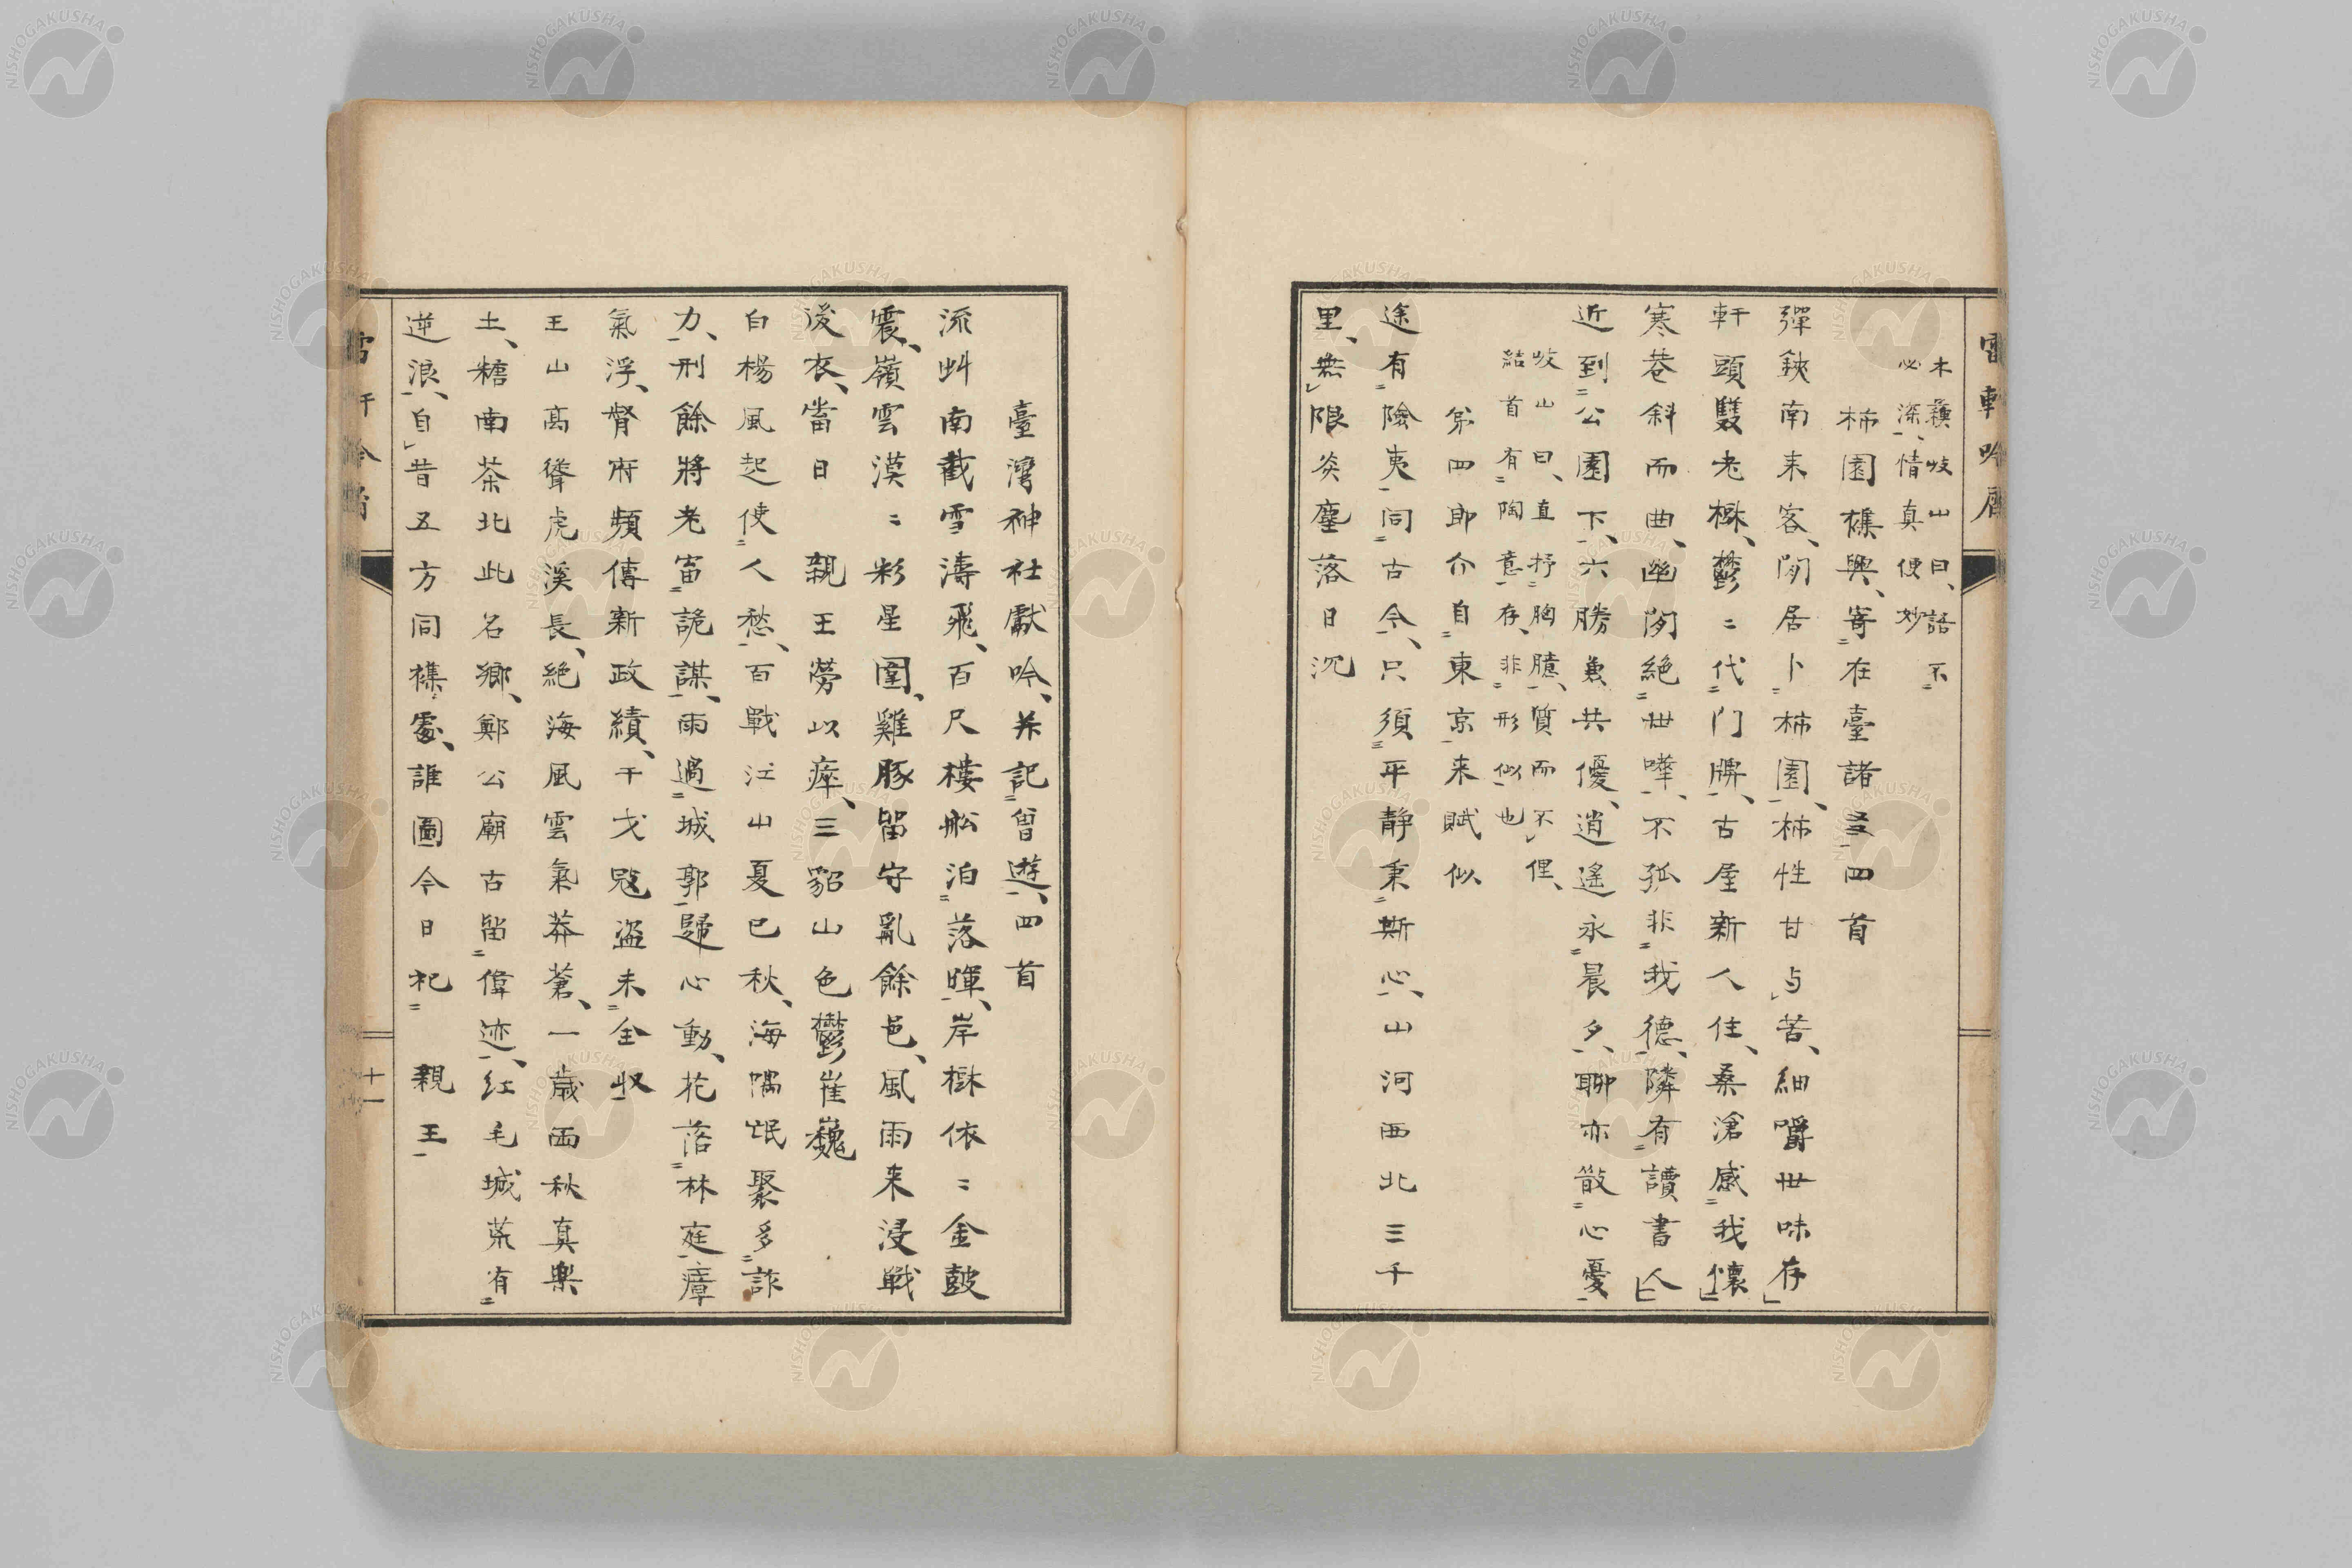 木蘓岐山曰、語不
必深、情真便妙
柿園襍興、寄在臺諸友四首
彈鋏南来客、閑居卜柿園、柿性甘与苦、細嚼世味存
軒頭雙老樹、鬱〻代門牌、古屋新人住、桑滄感我懐
寒巷斜而曲、幽閑絶世嘩、不孤非我德、隣有讀書人
近到公園下、六勝兼共優、逍遥永晨夕、聊亦散心憂
岐山曰、直抒胸臆、質而不俚、
結首有陶意存、非形似也
弟四郎介自東京来賦似
途有險夷同古今、只須平静秉斯心、山河西北三千
里、無限炎塵落日沉
臺灣神社獻吟、并記曾遊、四首
流虬南截雪濤飛、百尺樓船泊落暉、岸樹依〻金鼓
震、嶺雲漠〻彩星圍、雞豚留守亂餘邑、風雨来浸戦
後衣、當日　親王勞以瘁、三貂山色鬱崔巍
白楊風起使人愁、百戰江山夏已秋、海隅氓聚多詐
力、刑餘將老富詭謀、雨過城郭歸心動、花落林庭瘴
氣浮、督府頻傳新政績、干戈寇盗未全収
王山高聳虎溪長、絶海風雲氣莽蒼、一歳両秋真樂
土、糖南茶北此名鄉、鄭公廟古留偉迹、紅毛城荒有
逆浪、自昔五方同襍處、誰圖今日祀　親王
雷軒吟屑
十一